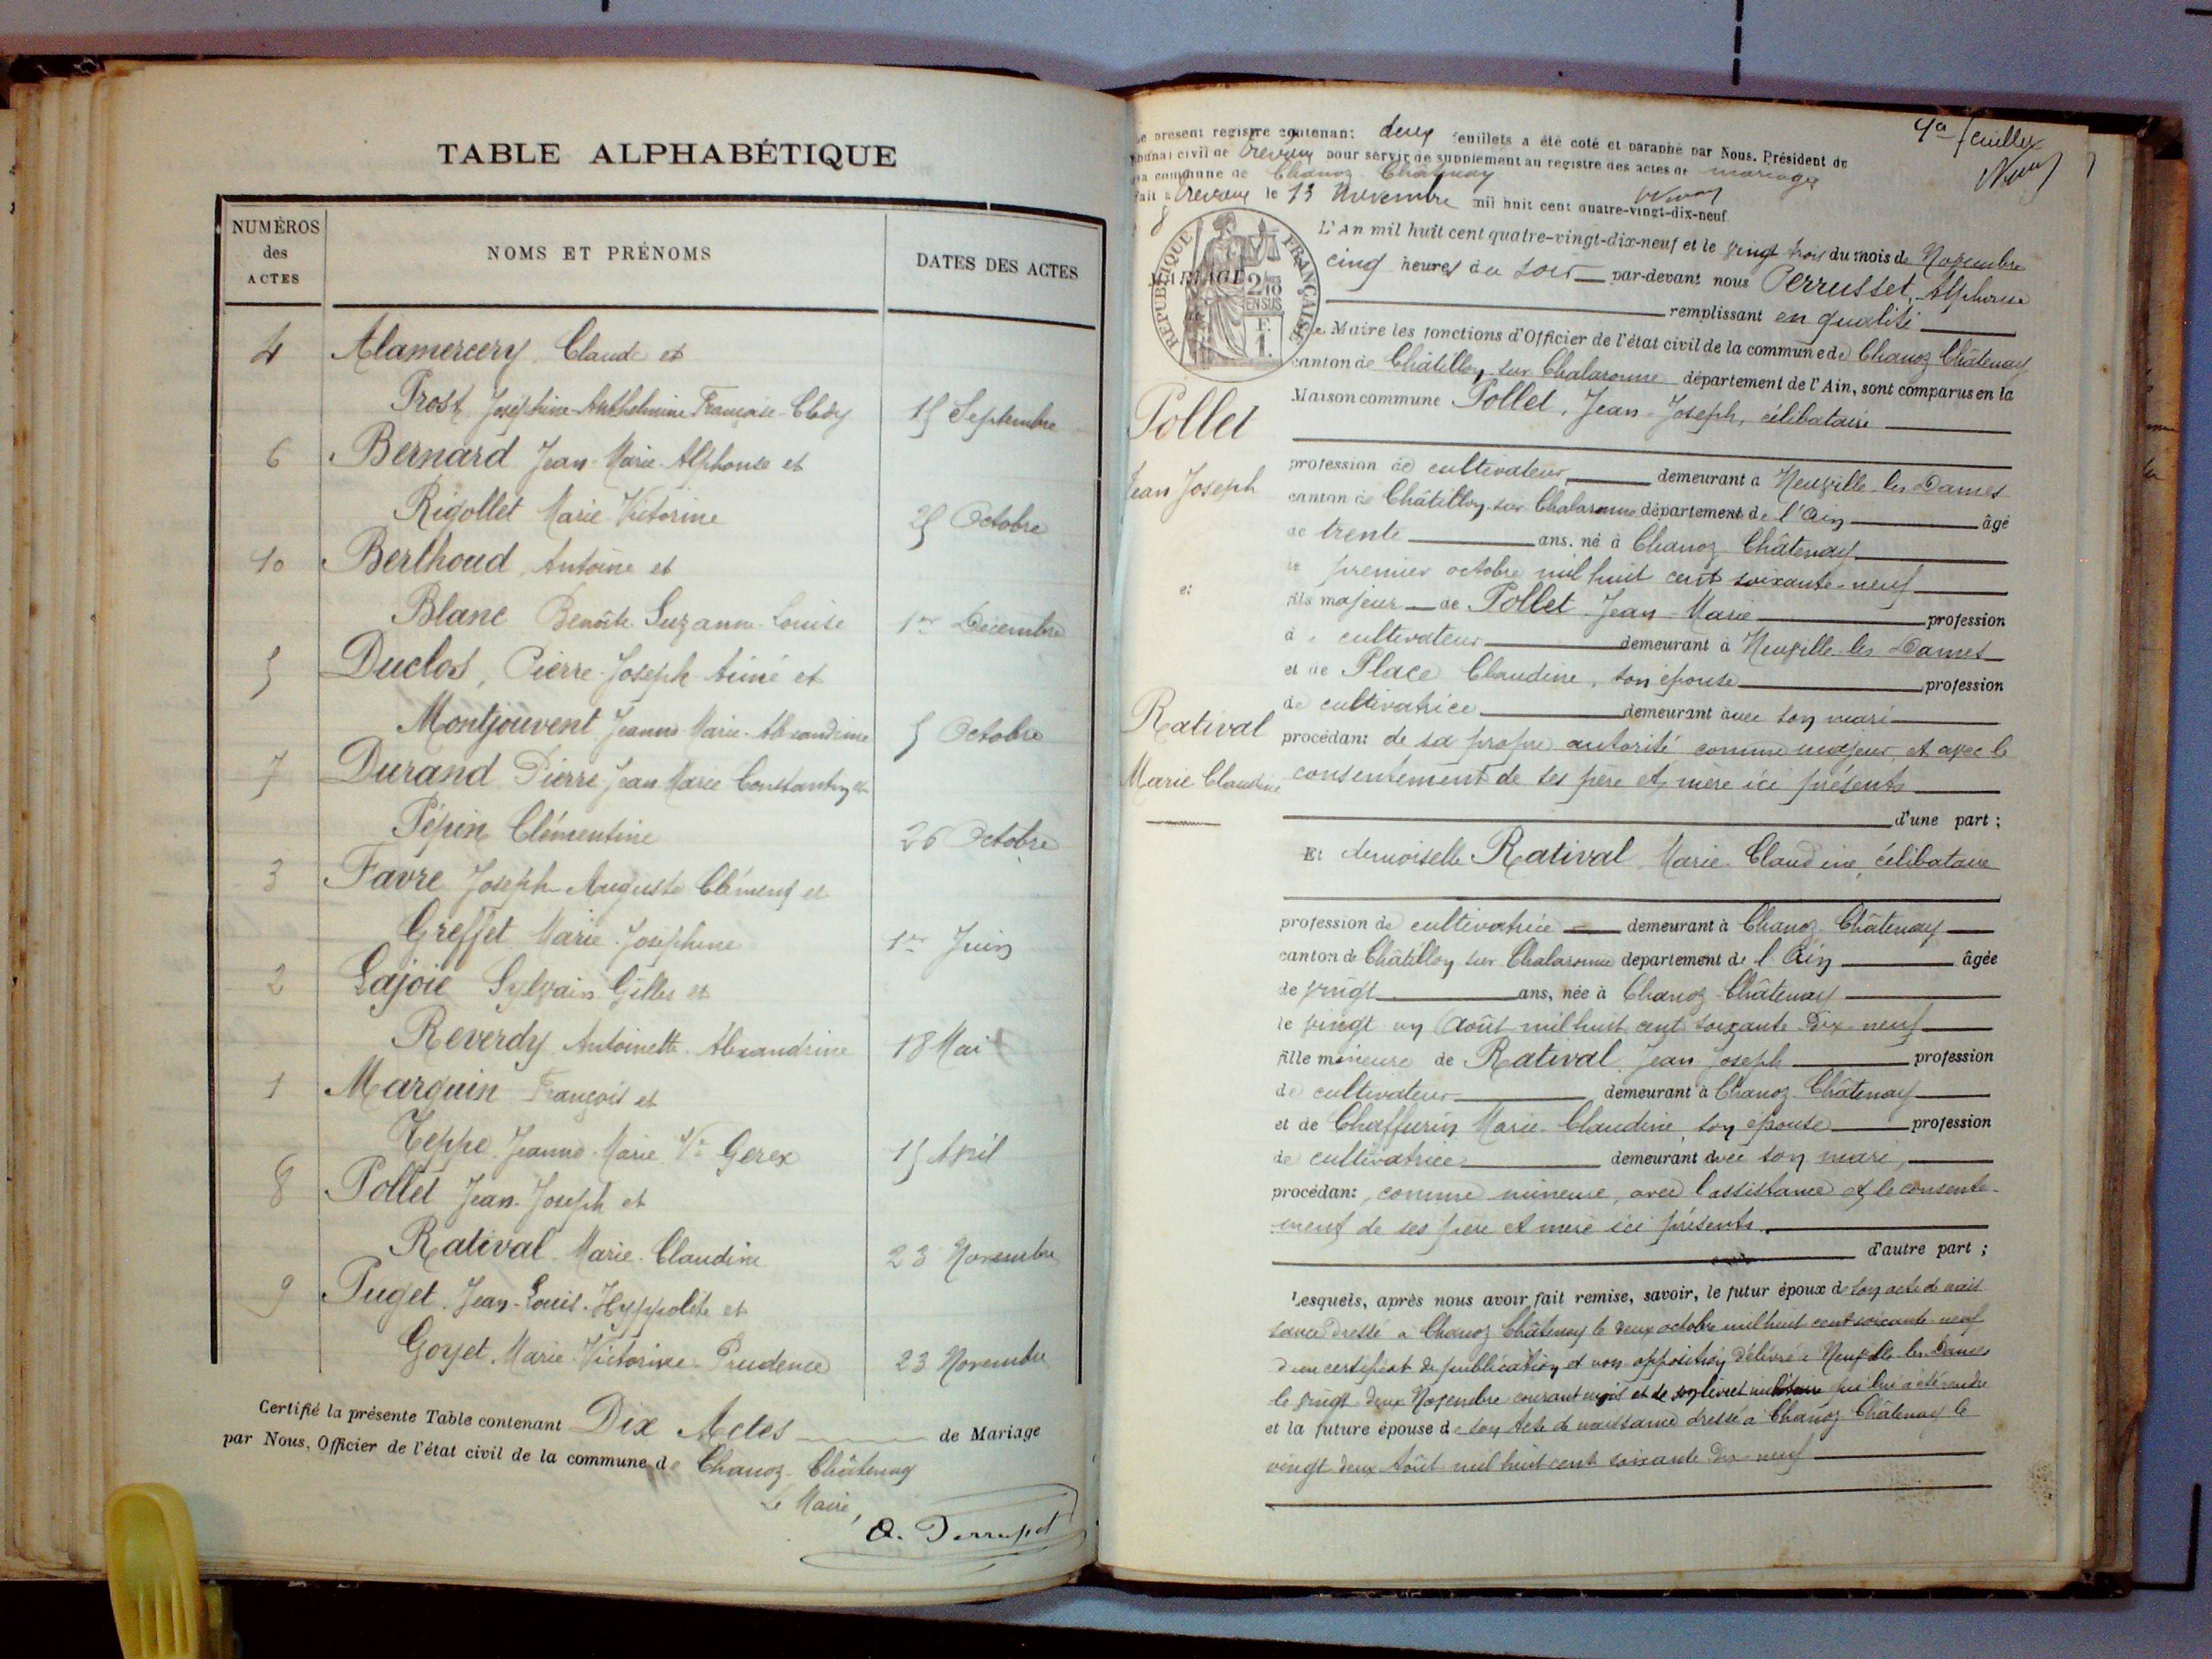 TABLE ALPHABÉTIQUE
NUMÉROS
des
ACTES
NOMS ET PRÉNOMS
DATES DES ACTES
4 Alamercery Claude et
Prost Joséphine-Anthelmine Françoise-Clady 15 Septembre
6 Bernard Jean-Marie-Alphonse et
Rigollet Marie Victorine 25 Octobre
10 Berthoud, Antoine et
Blanc Benoîte Suzanne-Louise 1er Décembre
5 Duclos, Pierre-Joseph-Aimé et
Montjouvent Jeanne Marie-Alexandrine 5 Octobre
7 Durand Pierre Jean Marie Constantin et
Pépin Clémentine 26 Octobre
3 Favre Joseph-Auguste Clément et
Greffet, Marie-Joséphine 1er Juin
2 Lajoie Sylvain Gilles et
Reverdy Antoinette-Alexandrine 18 Mai
1 Marguin François et
Teppe Jeanne-Marie Vve Gerex 15 Avril
8 Pollet Jean-Joseph et
Ratival Marie-Claudine 23 Novembre
9 Puget, Jean-Louis-Hyppolite et
Goyet, Marie-Victorine-Prudence 23 Novembre
Certifié la présente Table contenant Dix Actes de Mariage
par Nous, Officier de l'état civil de la commune de Chanoz-Châtenay
Le Maire,
A. Perrusset
feuillet
Le présent registre contenant deux feuillets a été coté et paraphé par Nous, Président du
Tribunal civil de Trévoux pour servir de supplément au registre des actes de mariages
la commune de Chanoz Châtenay
Fait à Trévoux le 13 Novembre mil huit cent quatre-vingt-dix-neuf
8
RÉPUBLIQUE FRANÇAISE
2/10
EN SUS
F.
1.
MARIAGE
de
Pollet
Jean Joseph
et
Ratival
Marie Claudine
L'An mil huit cent quatre-vingt-dix-neuf et le vingt trois du mois de Novembre
cinq heures du soir par-devant nous Perrusset, Alphonse
remplissant en qualité
de Maire les fonctions d'Officier de l'état civil de la commune de Chanoz Châtenay
canton de Châtillon sur Chalaronne département de l'Ain, sont comparus en la
Maison commune Pollet, Jean-Joseph, célibataire
profession de cultivateur, demeurant à Neuville-les-Dames
canton de Châtillon-sur Chalaronne département de l'Ain âgé
de trente ans, né à Chanoz-Châtenay
le premier octobre mil huit cent soixante-neuf
fils majeur de Pollet Jean-Marie profession
de cultivateur demeurant à Neuville-les-Dames
et de Place Claudine, son épouse profession
de cultivatrice demeurant avec son mari
procédant de sa propre autorité comme majeur, et avec le
consentement de ses père et mère ici présents
d'une part ;
Et demoiselle Ratival Marie-Claudine, célibataire
profession de cultivatrice demeurant à Chanoz-Châtenay
canton de Châtillon sur Chalaronne département de l'Ain âgée
de vingt ans, née à Chanoz-Châtenay
le vingt un Août mil huit cent soixante Dix-neuf
fille mineure de Ratival Jean Joseph profession
de cultivateur demeurant à Chanoz-Châtenay
et de Chaffurin Marie-Claudine, son épouse profession
de cultivatrice demeurant avec son mari,
procédant, comme mineure, avec l'assistance et le consente-
ment de ses père et mère ici présents.
d'autre part ;
Lesquels, après nous avoir fait remise, savoir, le futur époux de son acte de nais
sance dressé à Chanoz Châtenay le deux octobre mil huit cent soixante-neuf
d'un certificat de publication et non opposition délivré à Neuville-les-Dames
le vingt-deux Novembre courant mois et de son livret militaire qui lui a été rendu
et la future épouse de son Acte de naissance dressé à Chanoz-Châtenay le
vingt deux Août mil huit cent soixante Dix-neuf